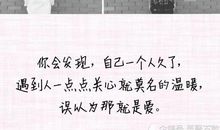 你会发现，自己一个人久了，
遇到人一点点关心就莫名的温暖，
误以为那就是爱。